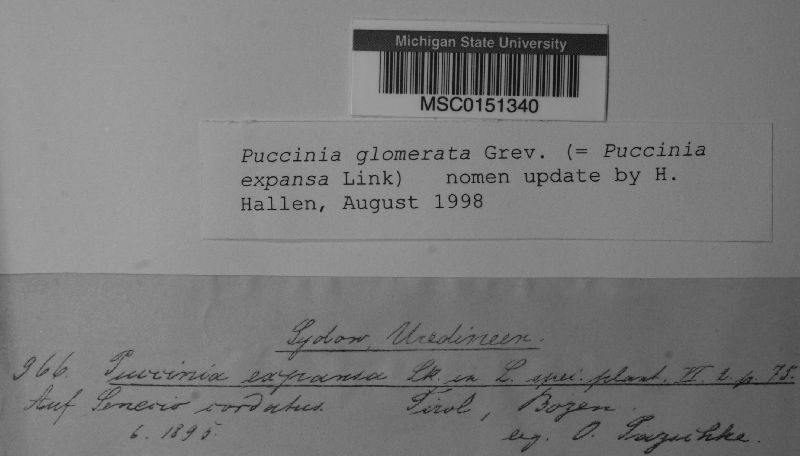 Michigan State University
MSC0151340
Puccinia glomerata Grev. (= Puccinia
expansa Link) nomen update by H.
Hallen, August 1998
Sydow, Uredineen.
966. Puccinia expansa Lk. in L. spec. plant. VI. 2. p. 75.
Auf Senecio cordatus. Tirol, Bozen.
6. 1895. leg. O. Pazschke.